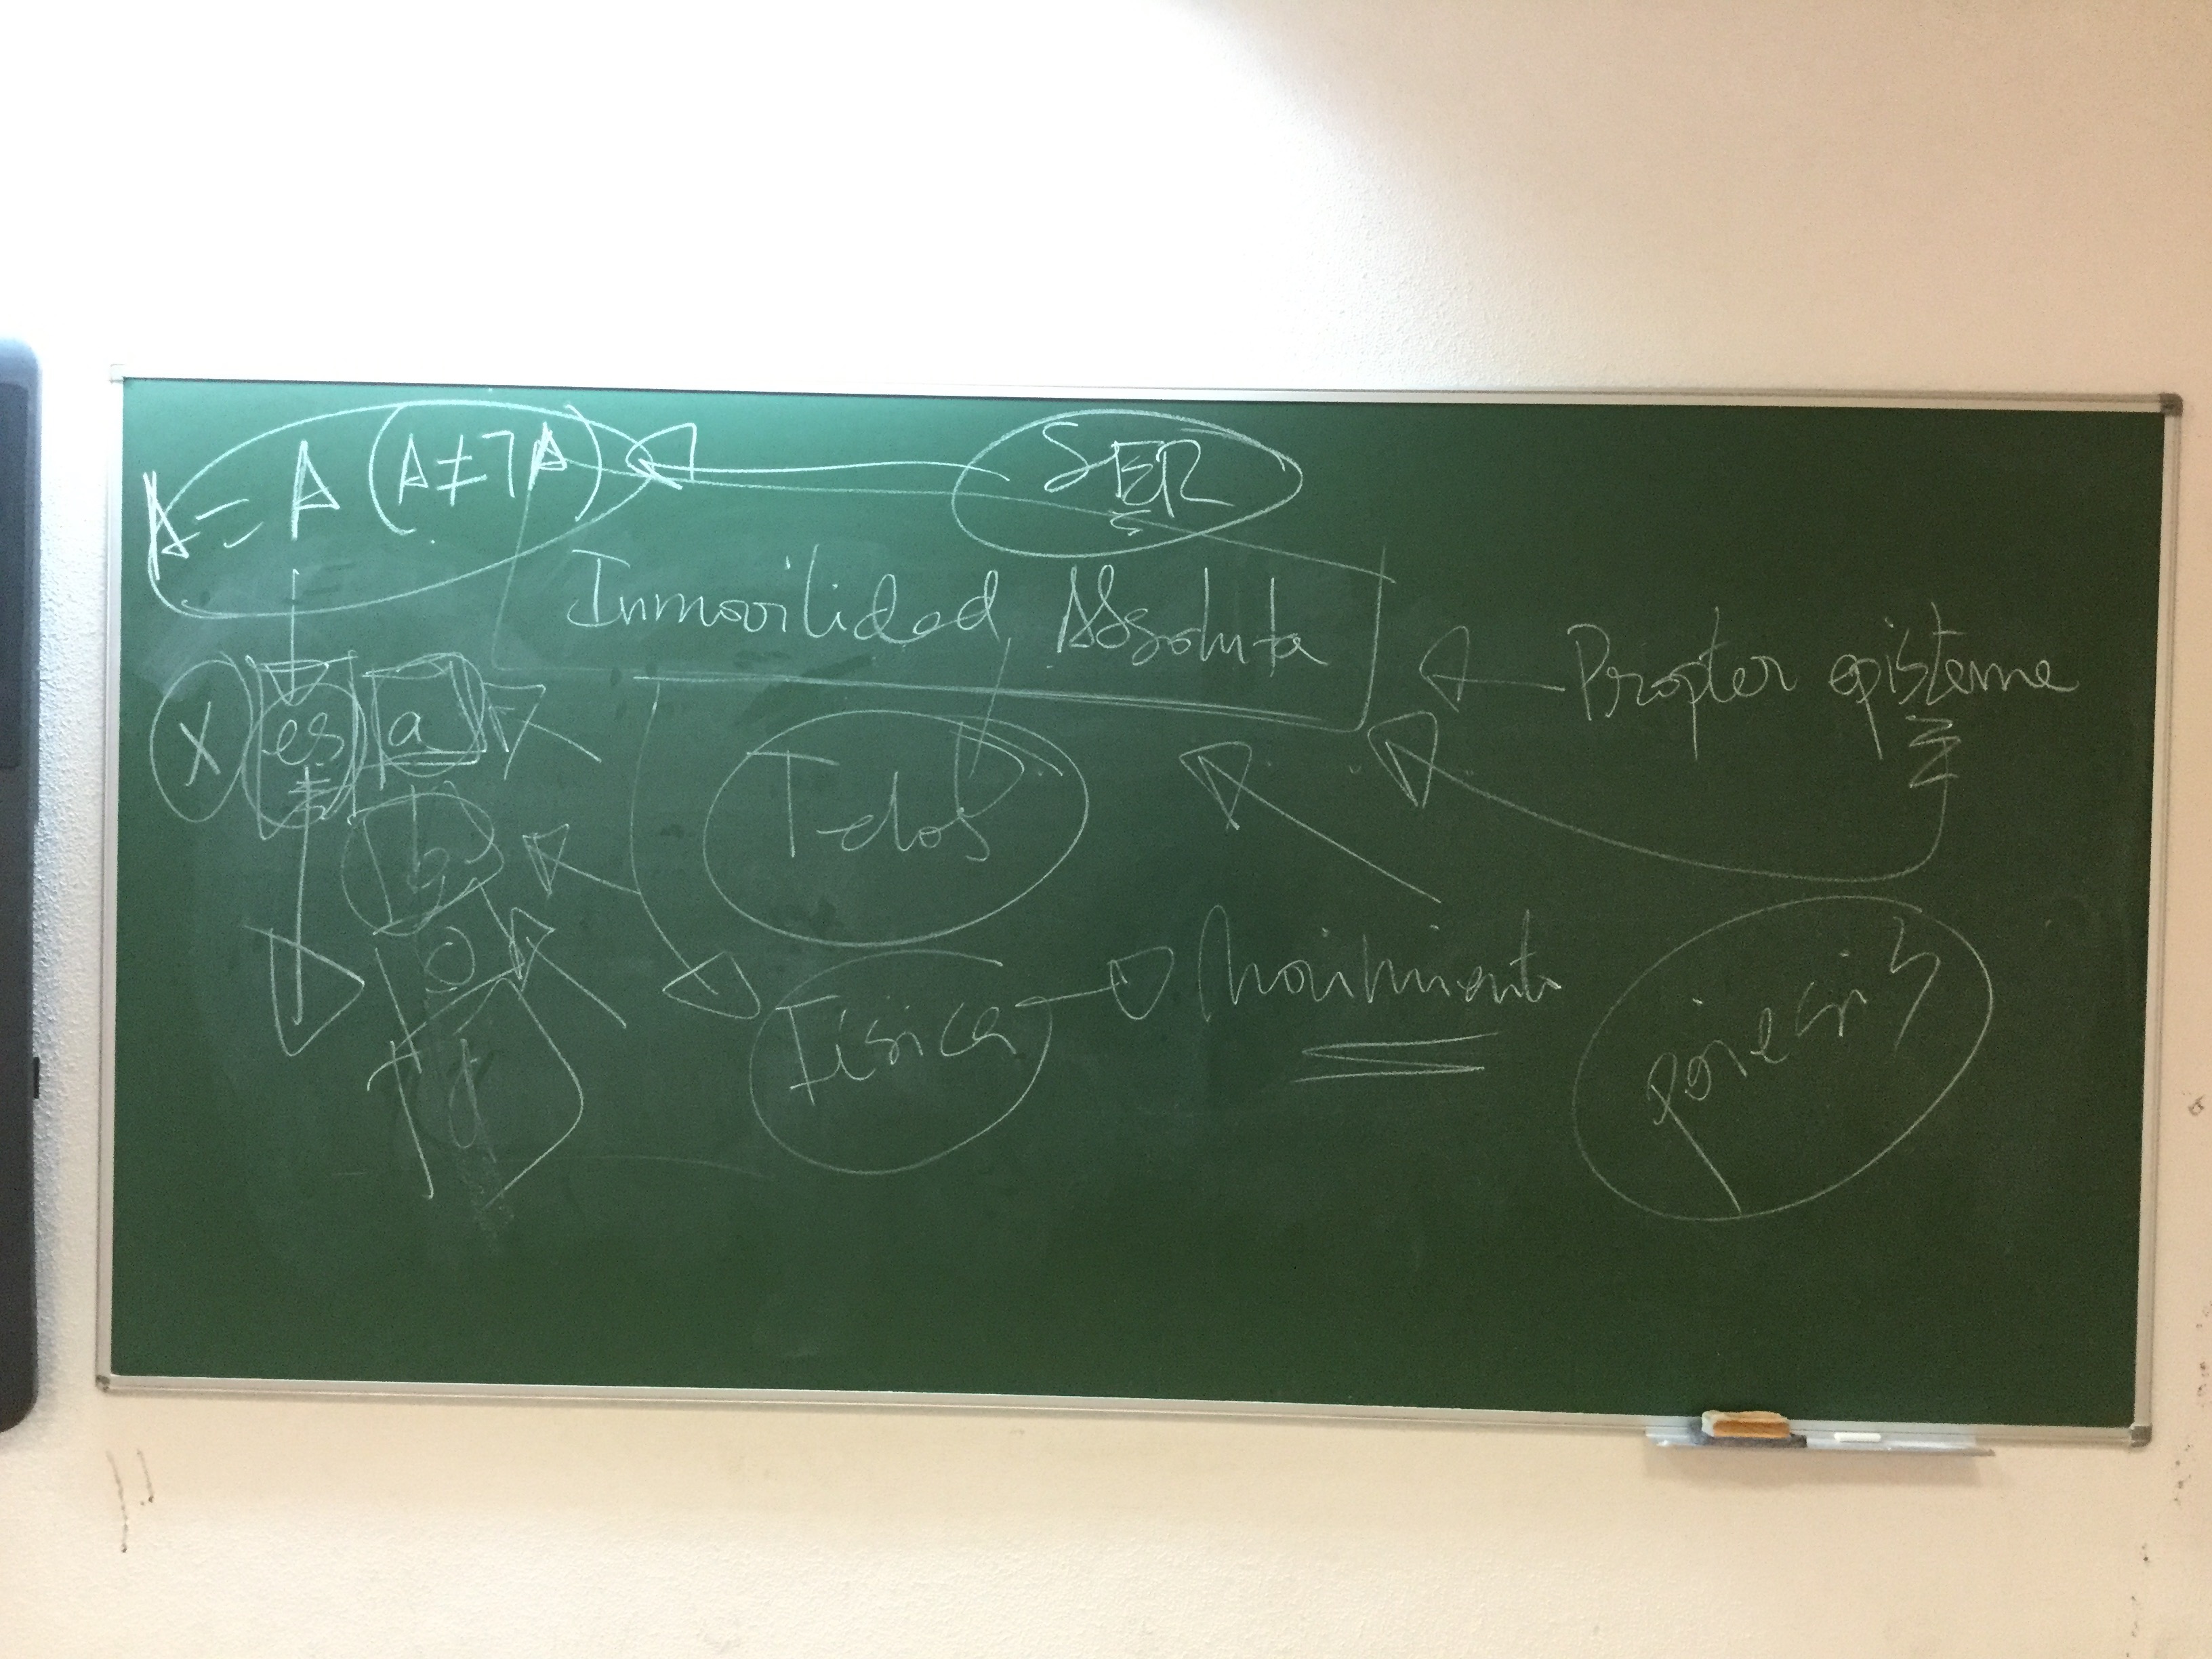 A = A (A ≠ ¬A)
SER
Inmovilidad Absoluta
Propter episteme
X es a
b
Telos
Física
Movimiento
poiesis